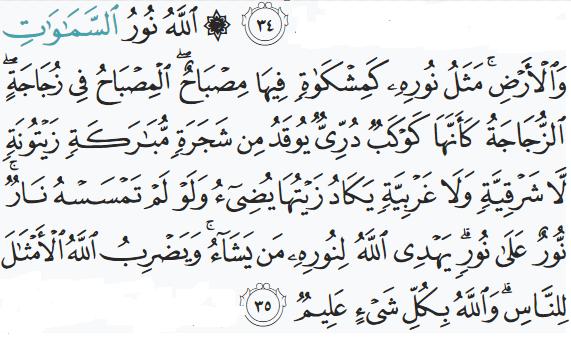 ٣٤ ۞ ٱللَّهُ نُورُ ٱلسَّمَٰوَٰتِ
وَٱلْأَرْضِ ۚ مَثَلُ نُورِهِۦ كَمِشْكَوٰةٍ فِيهَا مِصْبَاحٌ ۖ ٱلْمِصْبَاحُ فِى زُجَاجَةٍ ۖ
ٱلزُّجَاجَةُ كَأَنَّهَا كَوْكَبٌ دُرِّىٌّ يُوقَدُ مِن شَجَرَةٍ مُّبَٰرَكَةٍ زَيْتُونَةٍ
لَّا شَرْقِيَّةٍ وَلَا غَرْبِيَّةٍ يَكَادُ زَيْتُهَا يُضِىٓءُ وَلَوْ لَمْ تَمْسَسْهُ نَارٌ ۚ
نُّورٌ عَلَىٰ نُورٍ ۗ يَهْدِى ٱللَّهُ لِنُورِهِۦ مَن يَشَآءُ ۚ وَيَضْرِبُ ٱللَّهُ ٱلْأَمْثَٰلَ
لِلنَّاسِ ۗ وَٱللَّهُ بِكُلِّ شَىْءٍ عَلِيمٌ ٣٥